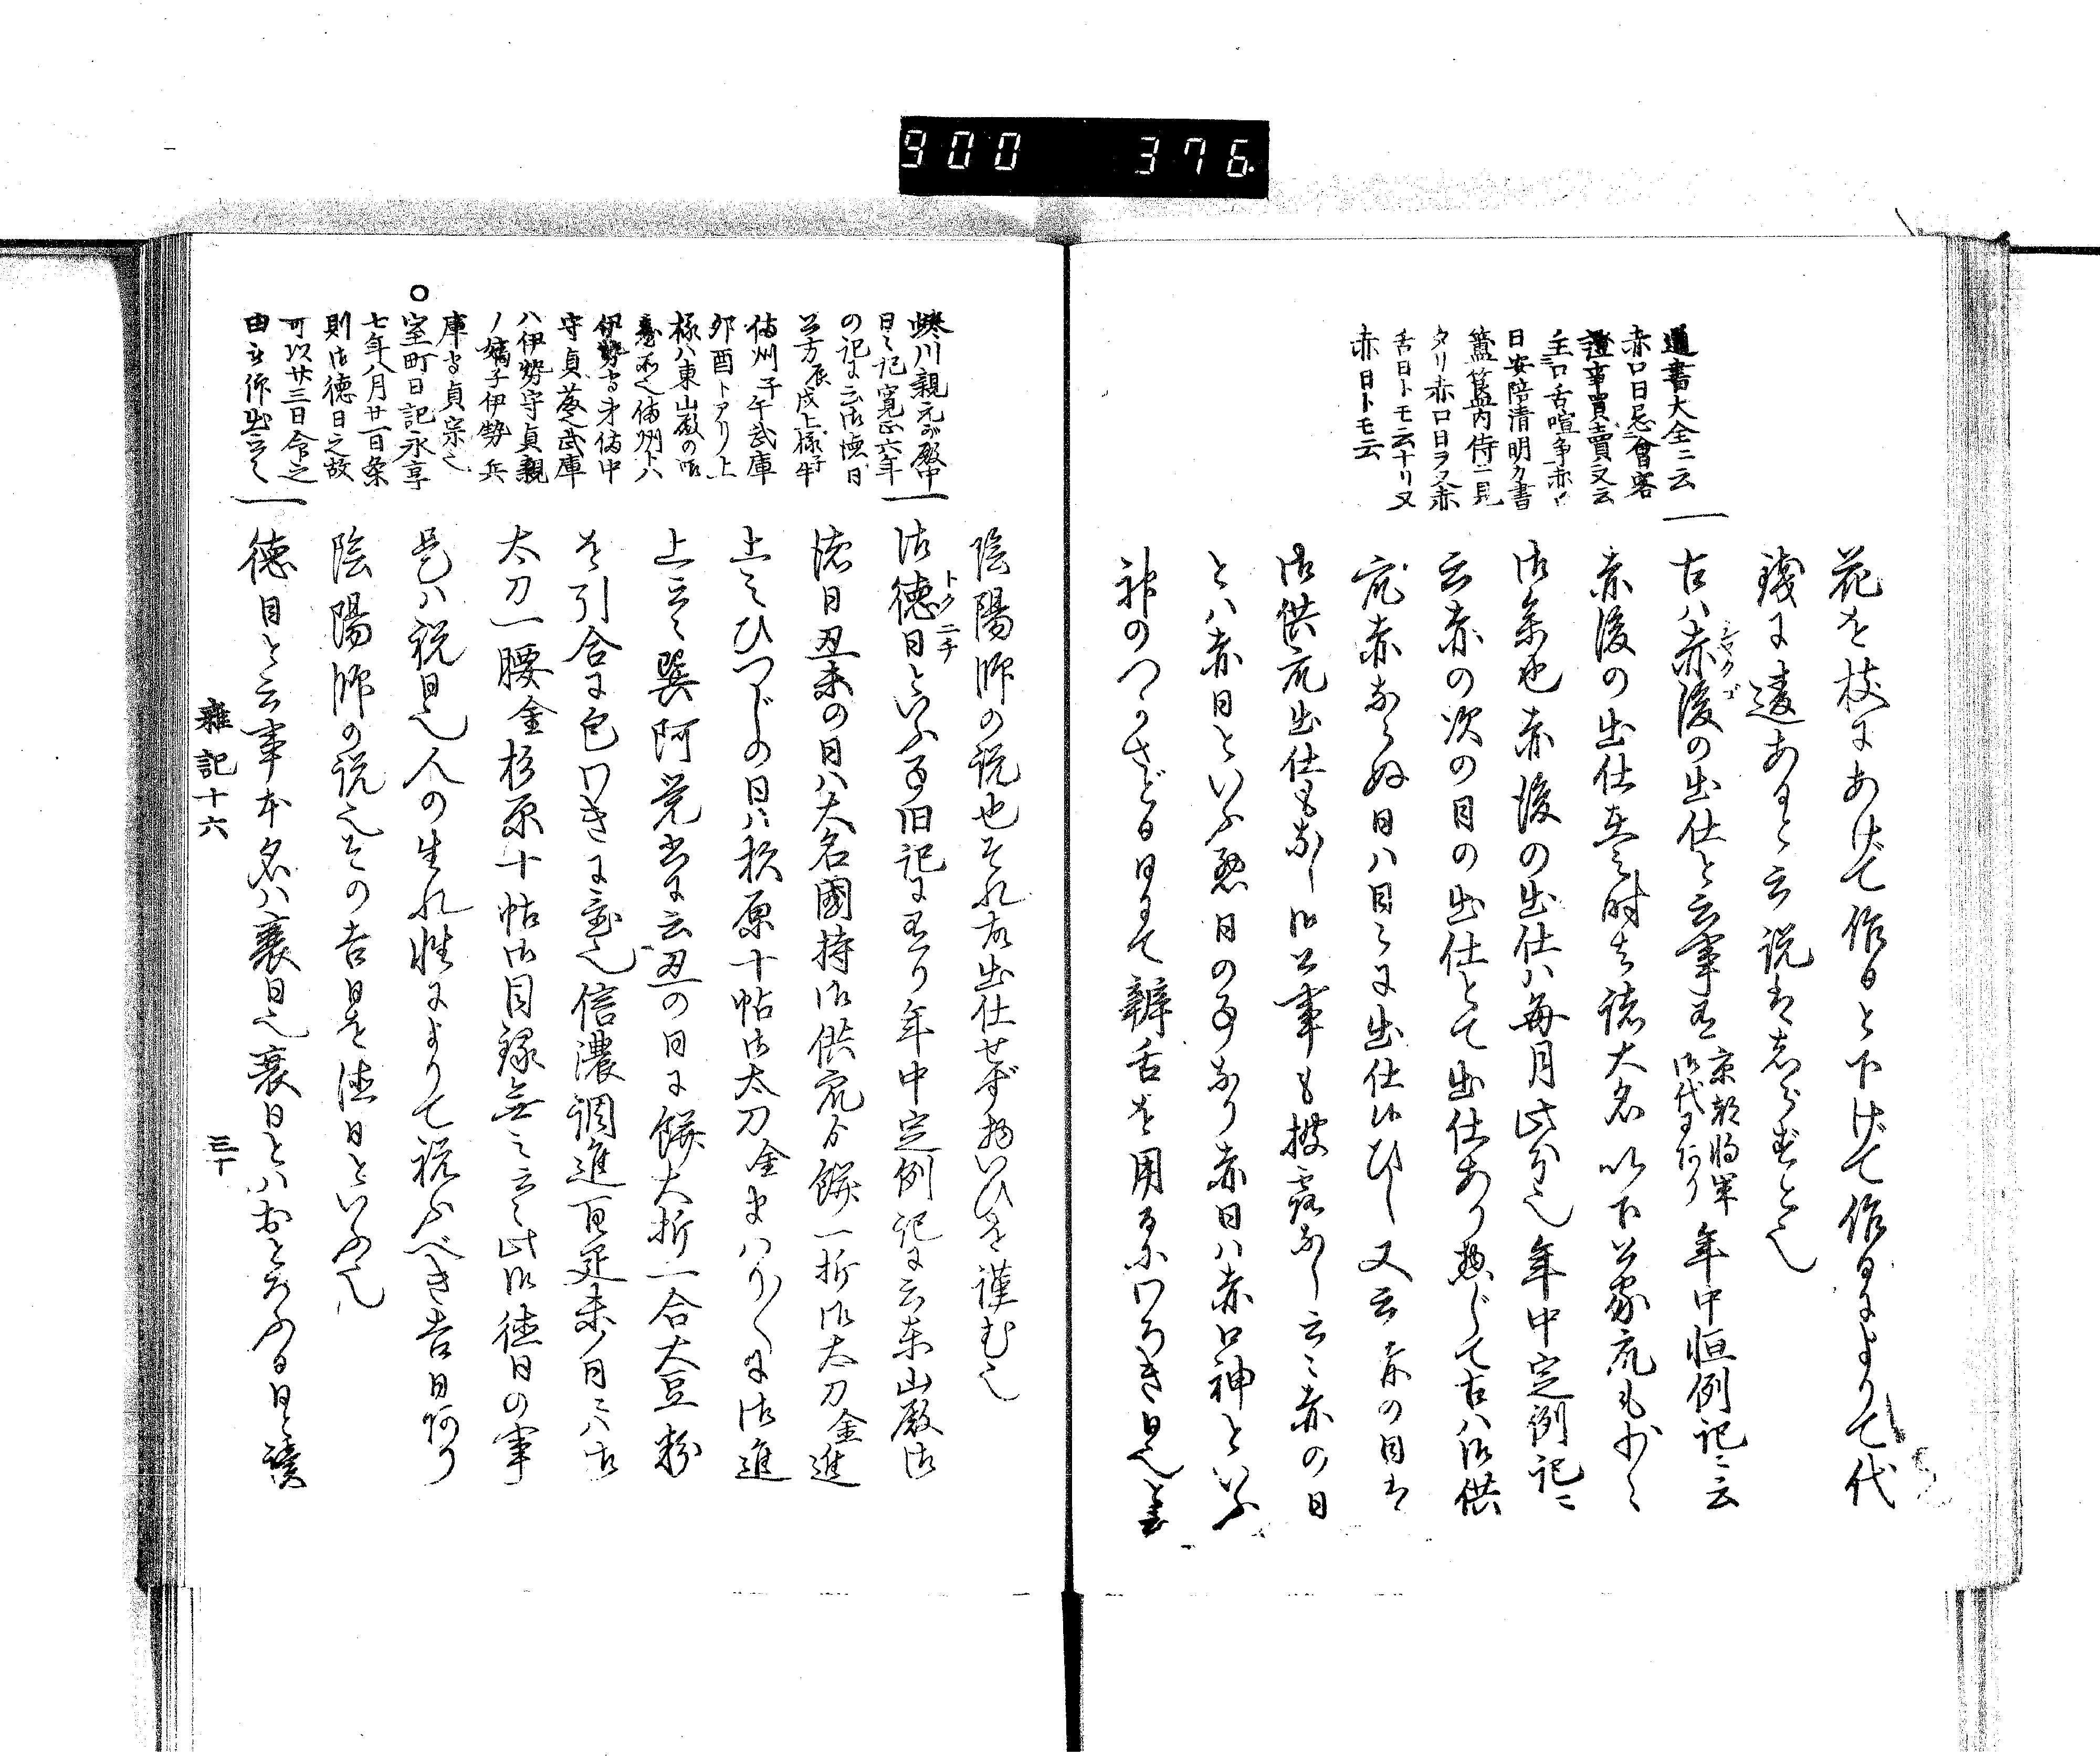 900 376.
通書大全ニ云
赤口日忌會客
證事買賣又云
主口舌喧争赤口
日安陪清明カ書
簠簋内傳ニ見
タリ赤口日ヲ又赤
舌日トモ云ナリ又
赤日トモ云
花を枝にあげて作ると下げて作るによりて代
錢に違ありと云説はあらずと也
一古ハ赤後の出仕と云事有京都将軍御代にあり年中恒例記ニ云
シヤクゴ
赤後の出仕と云時は諸大名以下公家衆も少々
御參也赤後の出仕ハ毎月此分也年中定例記ニ
云赤の次の日の出仕とて出仕あり惣じて古ハ御供
衆赤ならぬ日ハ日々に出仕候ひし又云赤の日は
御供衆出仕もなし御公事も披露なし云々赤の日
とハ赤日といふ悪日の事なり赤日ハ赤口神といふ
神のつかさどる日にて辯舌を用るにわろき日也と云
蜷川親元が殿中
日々記寛正六年
の記に云御徳日
公方辰戌上様子午
備州子午武庫
卯酉トアリ上
様ハ東山殿の御
臺所也備州トハ
伊勢守弟備中
守貞藤也武庫
ハ伊勢守貞親
ノ嫡子伊勢兵
庫守貞宗也
○室町日記永享
七年八月廿一日条
則御徳日之故
可以廿三日令之
由被仰出云々
陰陽師の説也それ故出仕せず物いひを謹む也
一御徳日といふ事旧記に有り年中定例記に云東山殿御
トク ニチ
徳日丑未の日ハ大名國持御供衆より餅一折御太刀金進
上之ひつじの日ハ杉原十帖御太刀金まハりまハりに御進
上云々巽阿覚書に云丑の日に餅大折一合大豆粉
を引合に包わきに置也信濃調進百疋未ノ日ニハ御
太刀一腰金杉原十帖御目録無之云々此御徳日の事
是ハ祝日也人の生れ性によりて祝ふべき吉日有り
陰陽師の説也その吉日を徳日といふ也
徳日と云事本名ハ衰日也衰日とハおとろふる日と讀
雜記十六
三十